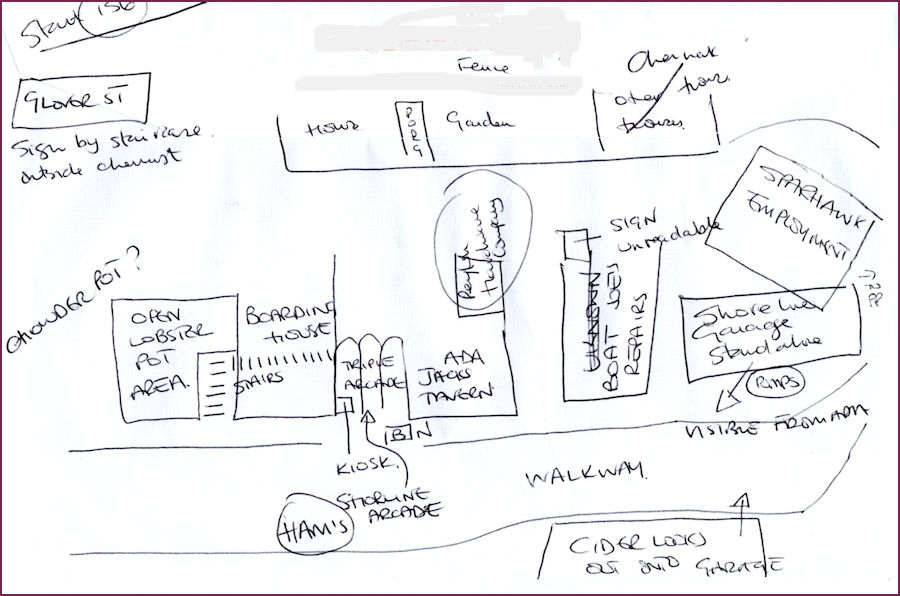 156
GLOVER ST
Sign by staircase
outside chemist
Fence
House
PORG
Garden
Other
SPARHAWK
EMPLOYMENT
SIGN
unreadable
Hardware
Company
CHOWDER POT?
OPEN
LOBSTER
POT
AREA.
BOARDING
HOUSE
STAIRS
TRIPLE
ARCADE
ADA
JACKS
TAVERN
BOAT
REPAIRS
Shoreline
Garage
Standalone
PUMPS
VISIBLE FROM ADA
BIN
KIOSK.
SHORLINE
ARCADE
HAM'S
WALKWAY.
CIDER LOOKS
OUT ONTO GARAGE